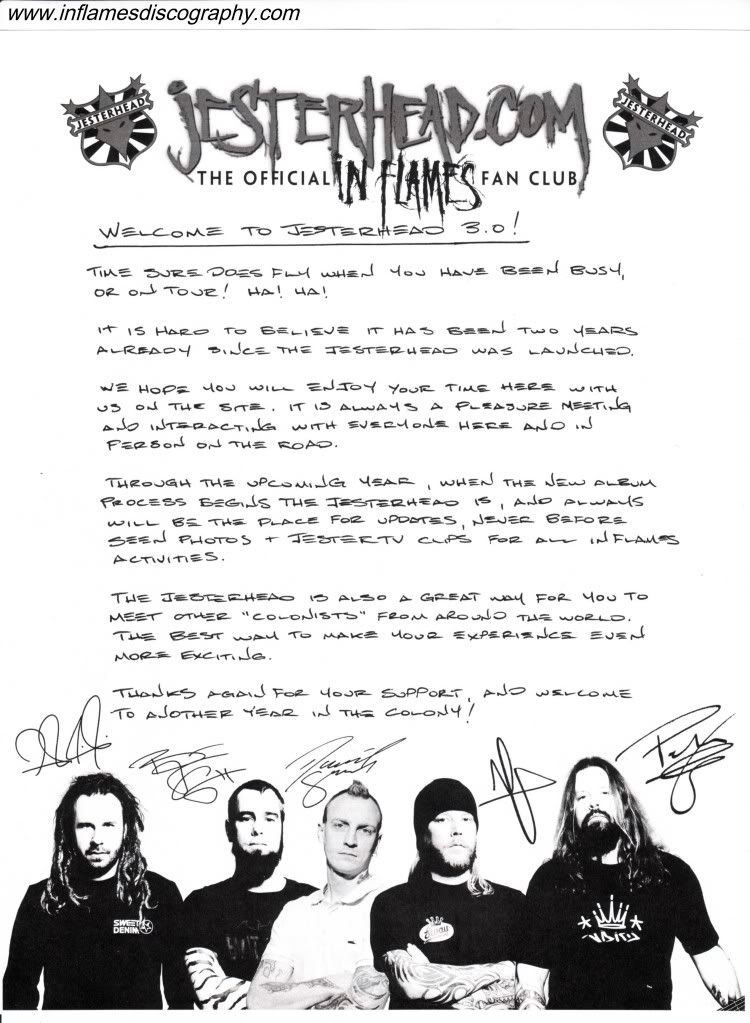 www.inflamesdiscography.com
JESTERHEAD
JESTERHEAD.COM
JESTERHEAD
THE OFFICIAL IN FLAMES FAN CLUB
WELCOME TO JESTERHEAD 3.0!
TIME SURE DOES FLY WHEN YOU HAVE BEEN BUSY,
OR ON TOUR! HA! HA!
IT IS HARD TO BELIEVE IT HAS BEEN TWO YEARS
ALREADY SINCE THE JESTERHEAD WAS LAUNCHED.
WE HOPE YOU WILL ENJOY YOUR TIME HERE WITH
US ON THE SITE. IT IS ALWAYS A PLEASURE MEETING
AND INTERACTING WITH EVERYONE HERE AND IN
PERSON ON THE ROAD.
THROUGH THE UPCOMING YEAR, WHEN THE NEW ALBUM
PROCESS BEGINS THE JESTERHEAD IS, AND ALWAYS
WILL BE THE PLACE FOR UPDATES, NEVER BEFORE
SEEN PHOTOS + JESTERTV CLIPS FOR ALL IN FLAMES
ACTIVITIES.
THE JESTERHEAD IS ALSO A GREAT WAY FOR YOU TO
MEET OTHER "COLONISTS" FROM AROUND THE WORLD.
THE BEST WAY TO MAKE YOUR EXPERIENCE EVEN
MORE EXCITING.
THANKS AGAIN FOR YOUR SUPPORT, AND WELCOME
TO ANOTHER YEAR IN THE COLONY!
SWEET
DENIM